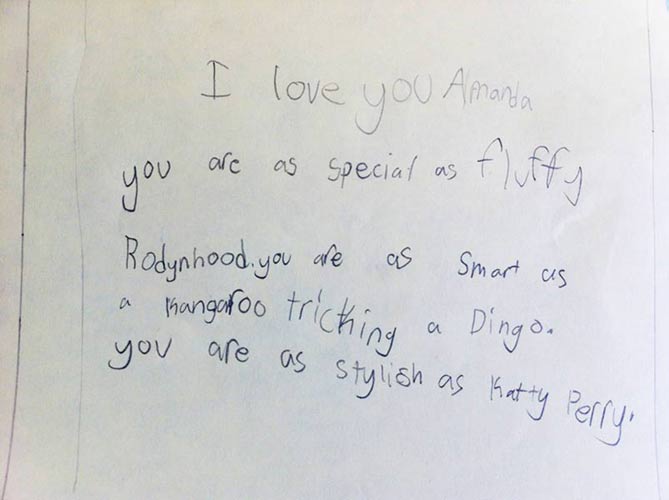 I love you Amanda
you are as special as fluffy
Rodynhood. you are as Smart as
a Kangaroo tricking a Dingo.
you are as stylish as Katty Perry.